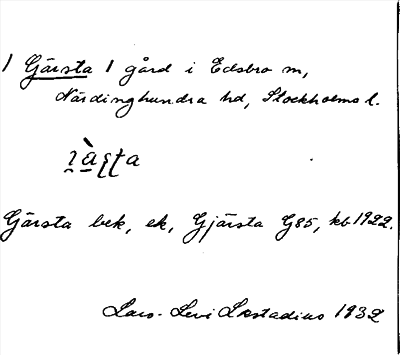 1 Gärsta 1 gård i Edsbro sn,
Närdinghundra hd, Stockholms l.
Gärsta bek, ek, Gjärsta G85, kb 1922.
Lars-Levi Læstadius 1932